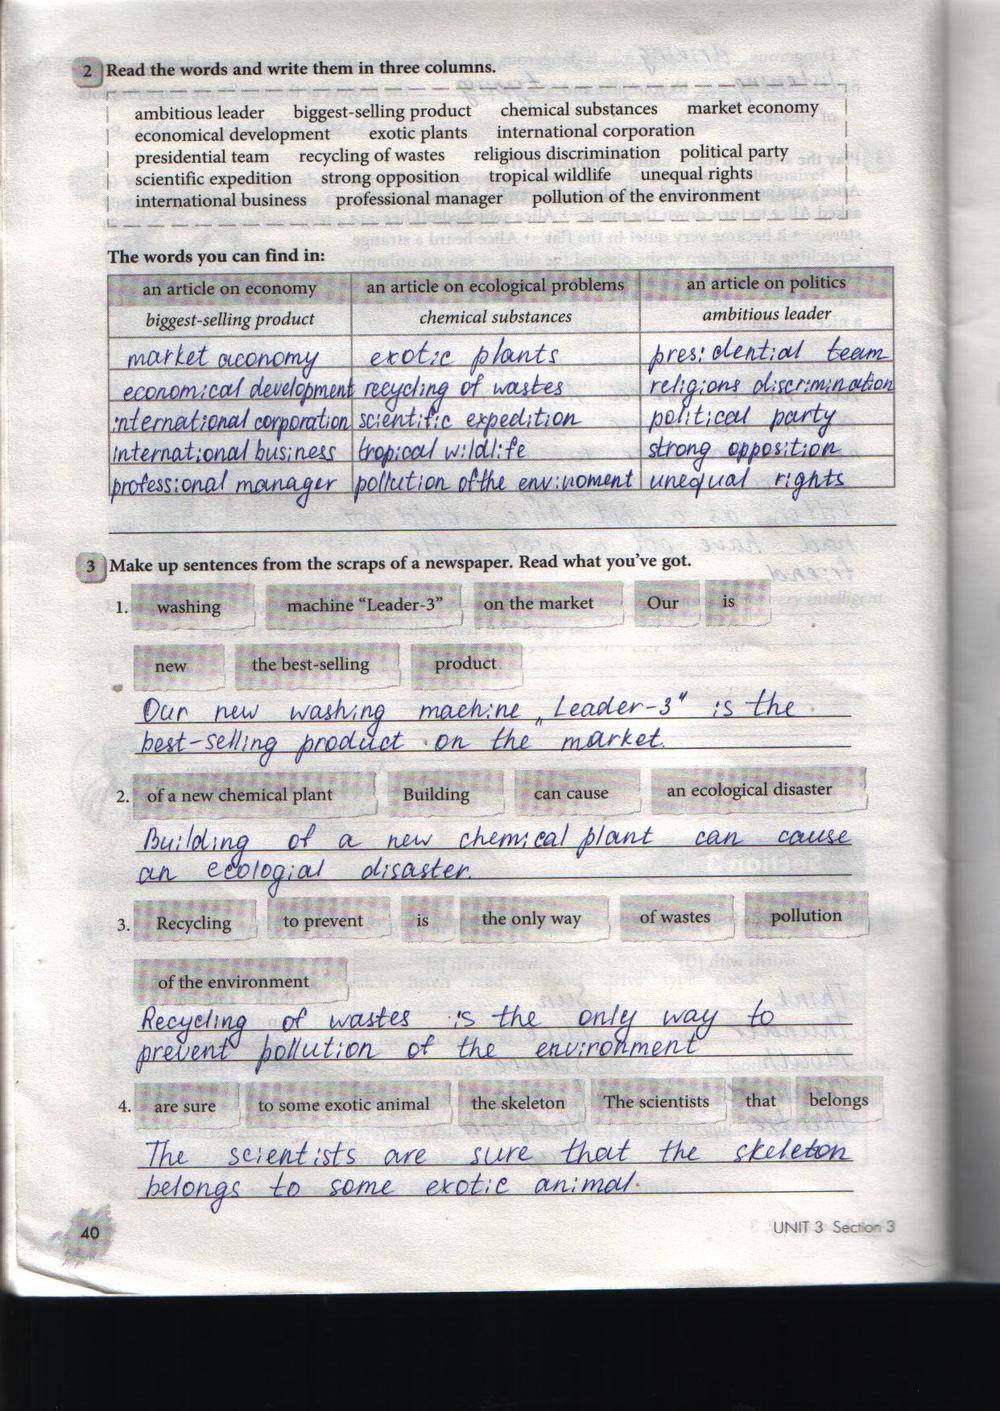 2 Read the words and write them in three columns.
ambitious leader biggest-selling product chemical substances market economy
economical development exotic plants international corporation
presidential team recycling of wastes religious discrimination political party
scientific expedition strong opposition tropical wildlife unequal rights
international business professional manager pollution of the environment
The words you can find in:
an article on economy an article on ecological problems an article on politics
biggest-selling product chemical substances ambitious leader
market aconomy exotic plants presidential team
economical development recycling of wastes religions discrimination
international corporation scientific expedition political party
international business tropical wildlife strong opposition
professional manager pollution of the envirnoment unequal rights
3 Make up sentences from the scraps of a newspaper. Read what you've got.
1. washing machine "Leader-3" on the market Our is
new the best-selling product
Our new washing machine „Leader-3" is the
best-selling product on the market.
2. of a new chemical plant Building can cause an ecological disaster
Building of a new chemical plant can cause
an ecologial disaster.
3. Recycling to prevent is the only way of wastes pollution
of the environment
Recycling of wastes is the only way to
prevent pollution of the environment
4. are sure to some exotic animal the skeleton The scientists that belongs
The scientists are sure that the skeleton
belongs to some exotic animal.
40 UNIT 3 Section 3